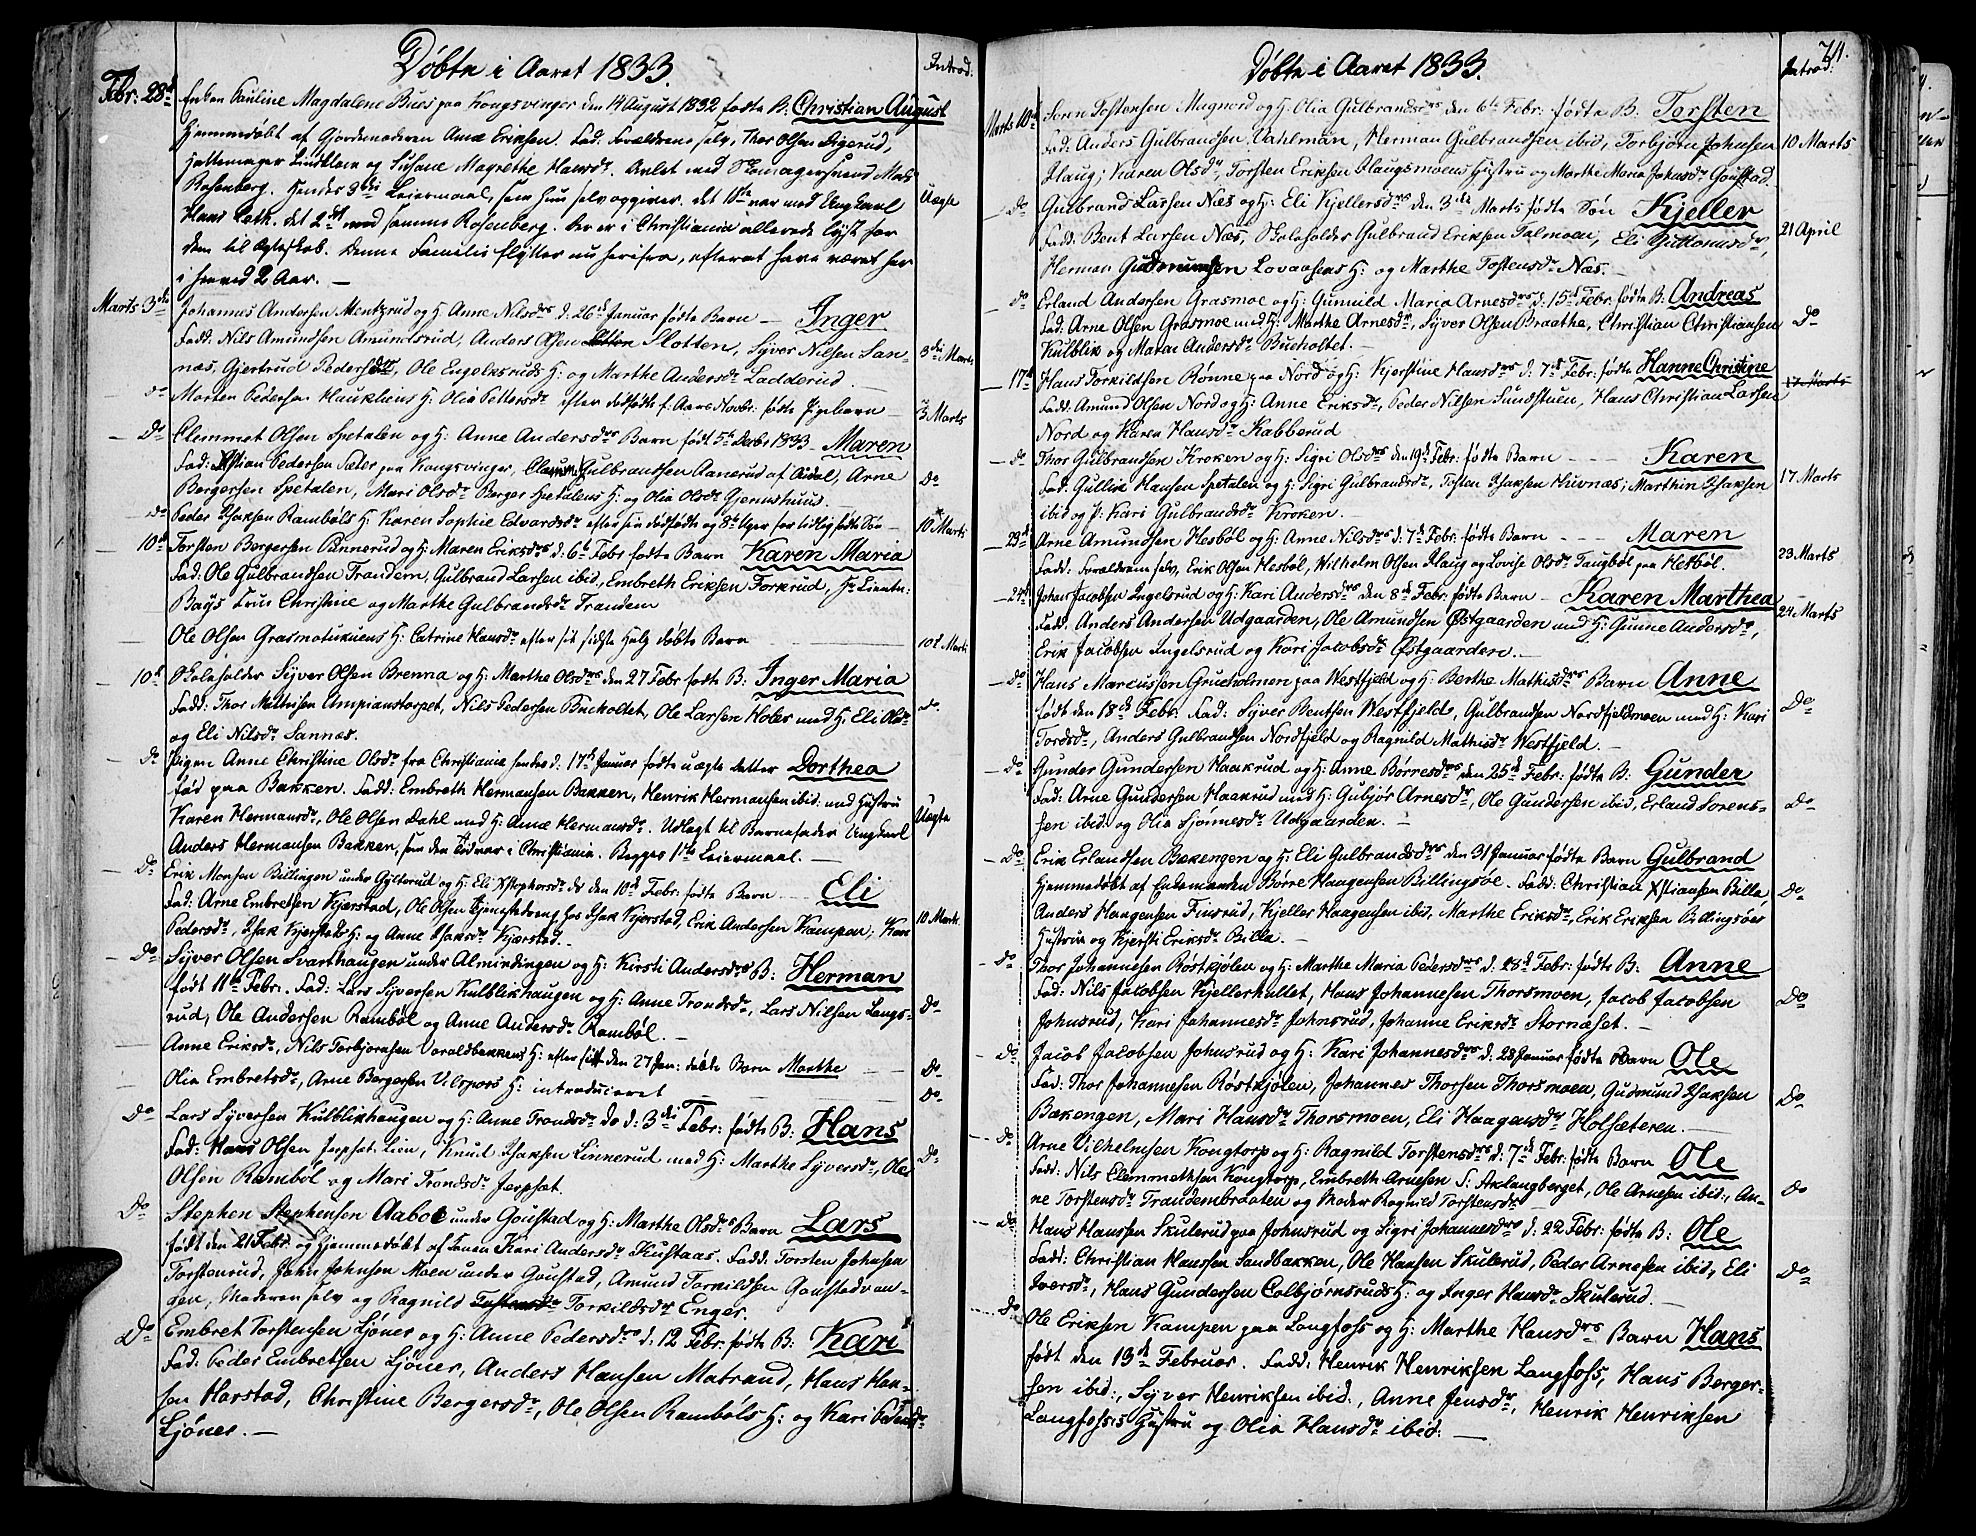 Døbte i Aaret 1833.
Introd:
Febr: 28d Enken Pauline Magdalene Bues paa Kongsvinger den 14 August 1832 fødte B: Christian August
Hjemmedøbt af Gjordemoderen Ame Eriksen. Fad. Forældrene selv, Thor Olsen Digerud,
Pottemager Lindklein og Susane Magrethe Hansdr. Anlet med Skomagersvend Mats
Rosenberg. Hendes 3die Leiermaal, som hun selv opgiver. det 1ste var med Ungkarl Uægte
Hans Leth. det 2det med samme Rosenberg. Der er i Christiania allerede lyst for
dem til Ægteskab. Denne Familie flytter nu herifra, efterat have været her
i henved 2 Aar. —
Marts 3die Johannes Andersen Mentzrud og H: Anne Nilsdrs d. 26d Januar fødte Barn — Inger
Fadd. Nils Amundsen Amundsrud, Anders Olsen Slotten, Syver Nilsen San- 3die Marts
næs, Gjertrud Pedersdr, Ole Engelksruds H: og Marthe Andersdr Ladderud —
do Morten Pedersen Haukliens H: Olia Pettersdr efter dødfødte f: Aars Novbr: fødte Pigebarn — 3 Marts
— Do Clemmet Olsen Spetalen og H: Anne Andersdrs Barn født 5te Decbr 1833 — Maren
Fad: Xstian Pedersen Sæter paa Kongsvinger, Gulbrandsen Aanerud af Eidsl, Arne Do
Bergersen Spetalen, Mari Olsdr Berger Spetalens H: og Olia Olsdr Gjemshuus
do Peder Isaksen Rambøls H: Karen Sophie Edvardsdr efter sin dødfødte og 8te Uger for tidlig fødte Søn — 10 Marts
— 10d Torsten Bergersen Pinnerud og H: Maren Eriksdrs d: 6te Febr fødte Barn Karen Maria
Fad: Ole Gulbrandsen Trandem, Gulbrand Larsen ibid, Embreth Eriksen Forkrud, Hr Lieutn:
Bays Frue Christine og Marthe Gulbrandsdr Trandem
— Ole Olsen Grasmotukuens H: Catrine Hansdr efter sit sidste Helg døbte Barn — 10d Marts
— 10d Skoleholder Syver Olsen Brenna og H: Marthe Olsdrs den 27 Febr fødte B: Inger Maria
Fadd: Thor Mathisen Ampianstorpet, Nils Pedersen Bucholtet, Ole Larsen Holer med H: Eli Olsdr do
og Eli Nilsdr Sannæs.
— Do Pigen Anne Christine Olsdr fra Christiania hendes d: 17d Januar fødte uægte datter Dorthea
fød paa Bakken. Fadd: Embreth Hermansen Bakken, Henrik Hermansen ibid: med Hustru
Karen Hermansdr, Ole Olsen Dahl med H: Ame Hermansdr. Udlagt til Barnefader Ungkarl Uægte
Anders Hermansen Bakken, som den Tid var i Christiania. Begges 1ste Leiermaal. —
— Do Erik Monsen Billingen under Gylterud og H: Eli Xstophersdr den 10d Febr: fødte Barn — Eli
Fad: Arne Embretsen Kjerstad, Ole Olsen Tjenestedreng hos Isak Kjerstad, Erik Andersen Kampen, Kari 10 Marts
Pedersdr, Isak Kjerstads H: og Anne Isaksdr Kjerstad.
— Do Syver Olsen Svarthaugen under Almindingen og H: Kirsti Andersdrs B: Herman
født 11te Febr. Fad: Lars Syversen Kulblikhaugen og H: Anne Trondsdr, Lars Nilsen Langs- Do
rud, Ole Andersen Rambøl og Anne Andersdr Rambøl. —
— Anne Eriksdr, Nils Torbjørnsen Voraldbakkens H: efter sit den 27 Jan: døbte Barn Marthe — Do
— Olia Embretsdr, Arne Bergersen Vilspors H: introduceret — Do
Do Lars Syversen Kulblikhaugen og H: Anne Trondsdr Do d: 3die Febr: fødte B: Hans
Fad: Hans Olsen Jerpset Lien, Knud Isaksen Linnerud med H: Marthe Syversdr, Ole Do
Olsen Rambøl og Mari Trondsdr Jerpset.
Do Stephen Stephensen Aaboe under Goustad og H: Marthe Olsdrs Barn Lars
født den 21 Febr. og Hjemmedøbt af Konen Kari Andersdr Kustaas. Fadd: Torsten Johnsen
Torstenrud, John Johnsen Moen under Goustad, Amund Torkildsen Goustadvan-
gen, Moderen selv og Ragnild Torkildsdr Enger.
Do Embret Torstensen Sjöner og H: Anne Pedersdrs d: 12 Febr. fødte B: Kari
Fad: Peder Embretsen Sjöner, Anders Hansen Matrand, Hans Han-
sen Harstad, Christine Bergersdr, Ole Olsen Rambøls H: og Kari Pedersdr
Sjöner. —
Døbte i Aaret 1833.
71.
Introd:
Marts 10d Søren Tostensen Mugnord og H: Olia Gulbrandsdrs den 6te Febr. fødte B. Torsten
Fad. Anders Gulbrandsen Vahlman, Herman Gulbrandsen ibid, Torbjörn Johnsen 10 Marts
Haug; Karen Olsdr, Torsten Eriksen Haugsmoens Hustru og Marthe Maria Johnsdr Goustad.
— do Gulbrand Larsen Næs og H: Eli Kjellersdrs den 3die Marts fødte Søn Kjeller
Fadd: Bent Larsen Næs, Skoleholder Gulbrand Eriksen Talmoen, Eli Guttormsdr, 21 April
Herman Gudmundsen Lovaasens H: og Marthe Tostensdr Næs. —
— do Erland Andersen Grasmoe og H: Gunnild Maria Arnesdrs d. 15d Febr. fødte B. Andreas
Fad: Arne Olsen Grasmoe med H: Marthe Arnesdr, Syver Olsen Braathe, Christian Christiansen Do
Kulblik og Maren Andersdr Bucholtet. —
— 17d Hans Torkildsen Rønne paa Nord og H: Kjerstine Hansdrs d: 7d Febr: fødte Hanne Christine
Fadd: Amund Olsen Nord og H: Anne Eriksdr, Peder Nilsen Sundstuen, Hans Christian Larsen 17 Marts
Nord og Karen Hansdr Kabberud
— do Thor Gulbrandsen Kroken og H: Sigri Olsdrs den 19d Febr: fødte Barn — Karen
Fad: Gullik Hansen Spetalen og H: Sigri Gulbrandsdr, Tosten Isaksen Hivnæs; Marthin Isaksen 17 Marts
ibid og P: Kari Gulbrandsdr Kroken. —
— 23d Arne Amundsen Hesbøl og H: Anne Nilsdrs d: 7d Febr: fødte Barn — Maren
Fadd: Forældrene selv, Erik Olsen Hesbøl, Wilhelm Olsen Haug og Lovise Olsdr Taugbøl paa Hesbøl. 23 Marts
— 24d Johan Jacobsen Ingelsrud og H: Kari Andersdrs den 8d Febr: fødte Barn — Karen Marthea
Fadd: Anders Andersen Udgaarden, Ole Amundsen Østgaarden med H: Gunne Andersdr, 24 Marts
Erik Jacobsen Ingelsrud og Kari Jacobsdr Østgaarden. —
— Do Hans Marcussen Grueholmen paa Westfjeld og H: Berthe Mathisdrs Barn Anne
født den 18d Febr: Fad: Syver Bentsen Westfjeld, Gulbrandsen Nordfjeldmoen med H: Kari Do
Tordsdr, Anders Gulbrandsen Nordfjeld og Ragnild Mathisdr Westfjeld. —
— Do Gunder Gundersen Haakrud og H: Anne Børresdrs den 25d Febr: fødte B: Gunder
Fad: Arne Gundersen Haakrud med H: Gubjør Arnesdr, Ole Gundersen ibid, Erland Sorens- Do
sen ibid: og Olia Sjønnesdr Udgaarden. —
— Do Erik Erlandsen Bækengen og H: Eli Gulbrandsdrs den 31 Januar fødte Barn Gulbrand
Hjemmedøbt af Enkemanden Børre Haagensen Billingsøe. Fadd: Christian Xstiansen Billa, Do
Anders Haagensen Finsrud, Kjeller Haagensen ibid, Marthe Eriksdr, Erik Eriksen Billingsøes
Hustru og Kjersti Eriksdr Billa. —
— Do Thor Johannesen Røstkjølen og H: Marthe Maria Pedersdrs d: 28d Febr: fødte B: Anne
Fad: Nils Jacobsen Kjellerhullet, Hans Johannesen Thorsmoen, Jacob Jacobsen Do
Johnsrud, Kari Johannesdr Johnsrud, Johanne Eriksdr Stornæset. —
— Do Jacob Jacobsen Johnsrud og H: Kari Johannesdrs d: 28 Januar fødte Barn Ole
Fad: Thor Johannesen Røstkjølen, Johannes Thorsen Thorsmoen, Gudmund Isaksen Do
Bækengen, Mari Hansdr Thorsmoen, Eli Haagensdr Holsæteren. —
— do Arne Vilhelmsen Kongtorp og H: Ragnild Torstensdrs d: 7d Febr: fødte Barn Ole
Fadd: Nils Clemmethsen Kongtorp, Embreth Arnesen S: Aklangberget, Ole Arnesen ibid:, An- do
ne Torstensdr Trandembraaten og Moder Ragnild Torstensdr
— do Hans Hanssen Skulerud paa Johnsrud og Sigri Johannesdrs d: 22 Febr: fødte B: Ole
Fadd: Christian Hanssen Sandbakken, Ole Hansen Skulerud, Peder Arnesen ibid, Eli Do
Iversdr, Hans Gundersen Colbjørnsruds H: og Inger Hansdr Skulerud. —
Do Ole Eriksen Kampen paa Langfoss og H: Marthe Hansdrs Barn Hans
født den 13d Februar. Fadd: Henrik Henriksen Langfoss, Hans Berger-
sen ibid:, Syver Henriksen ibid., Anne Jensdr, Henrik Henriksen
Langfosses Hustru og Olia Hansdr ibid: —